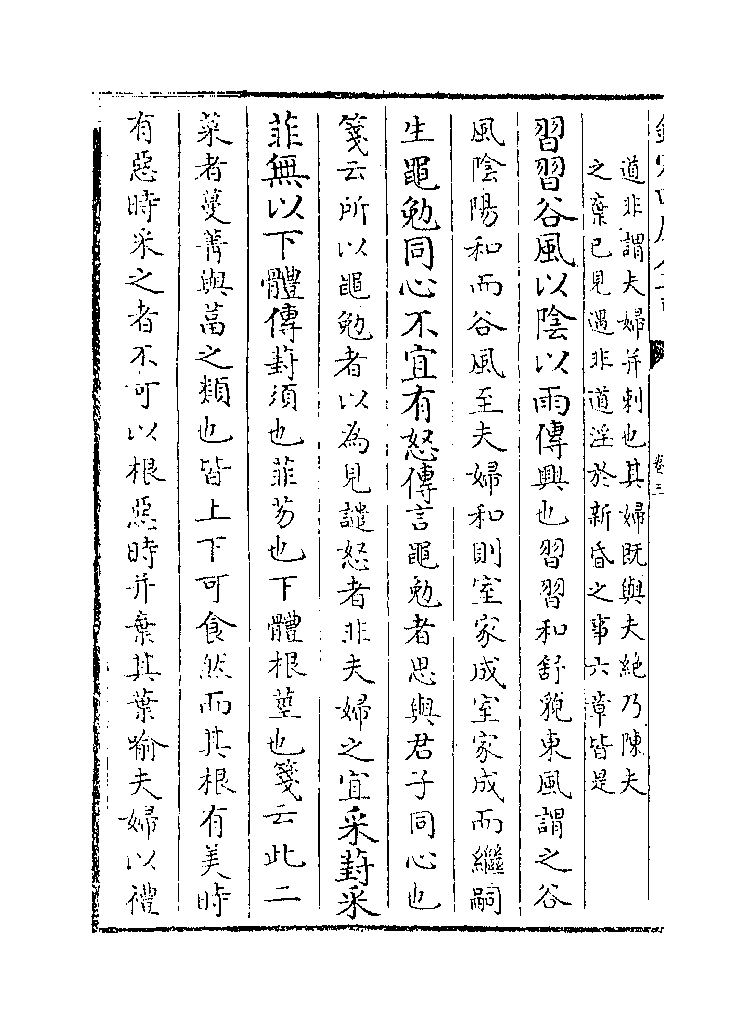 道非謂夫婦并刺也其婦既與夫絶乃陳夫
之棄已見遇非道淫於新昏之事六章皆是
習習谷風以陰以雨傳興也習習和舒貌東風謂之谷
風陰陽和而谷風至夫婦和則室家成室家成而繼嗣
生黽勉同心不宜有怒傳言黽勉者思與君子同心也
箋云所以黽勉者以為見譴怒者非夫婦之宜采葑采
菲無以下體傳葑須也菲芴也下體根莖也箋云此二
菜者蔓菁與葍之類也皆上下可食然而其根有美時
有惡時采之者不可以根惡時并棄其葉喻夫婦以禮
卷三